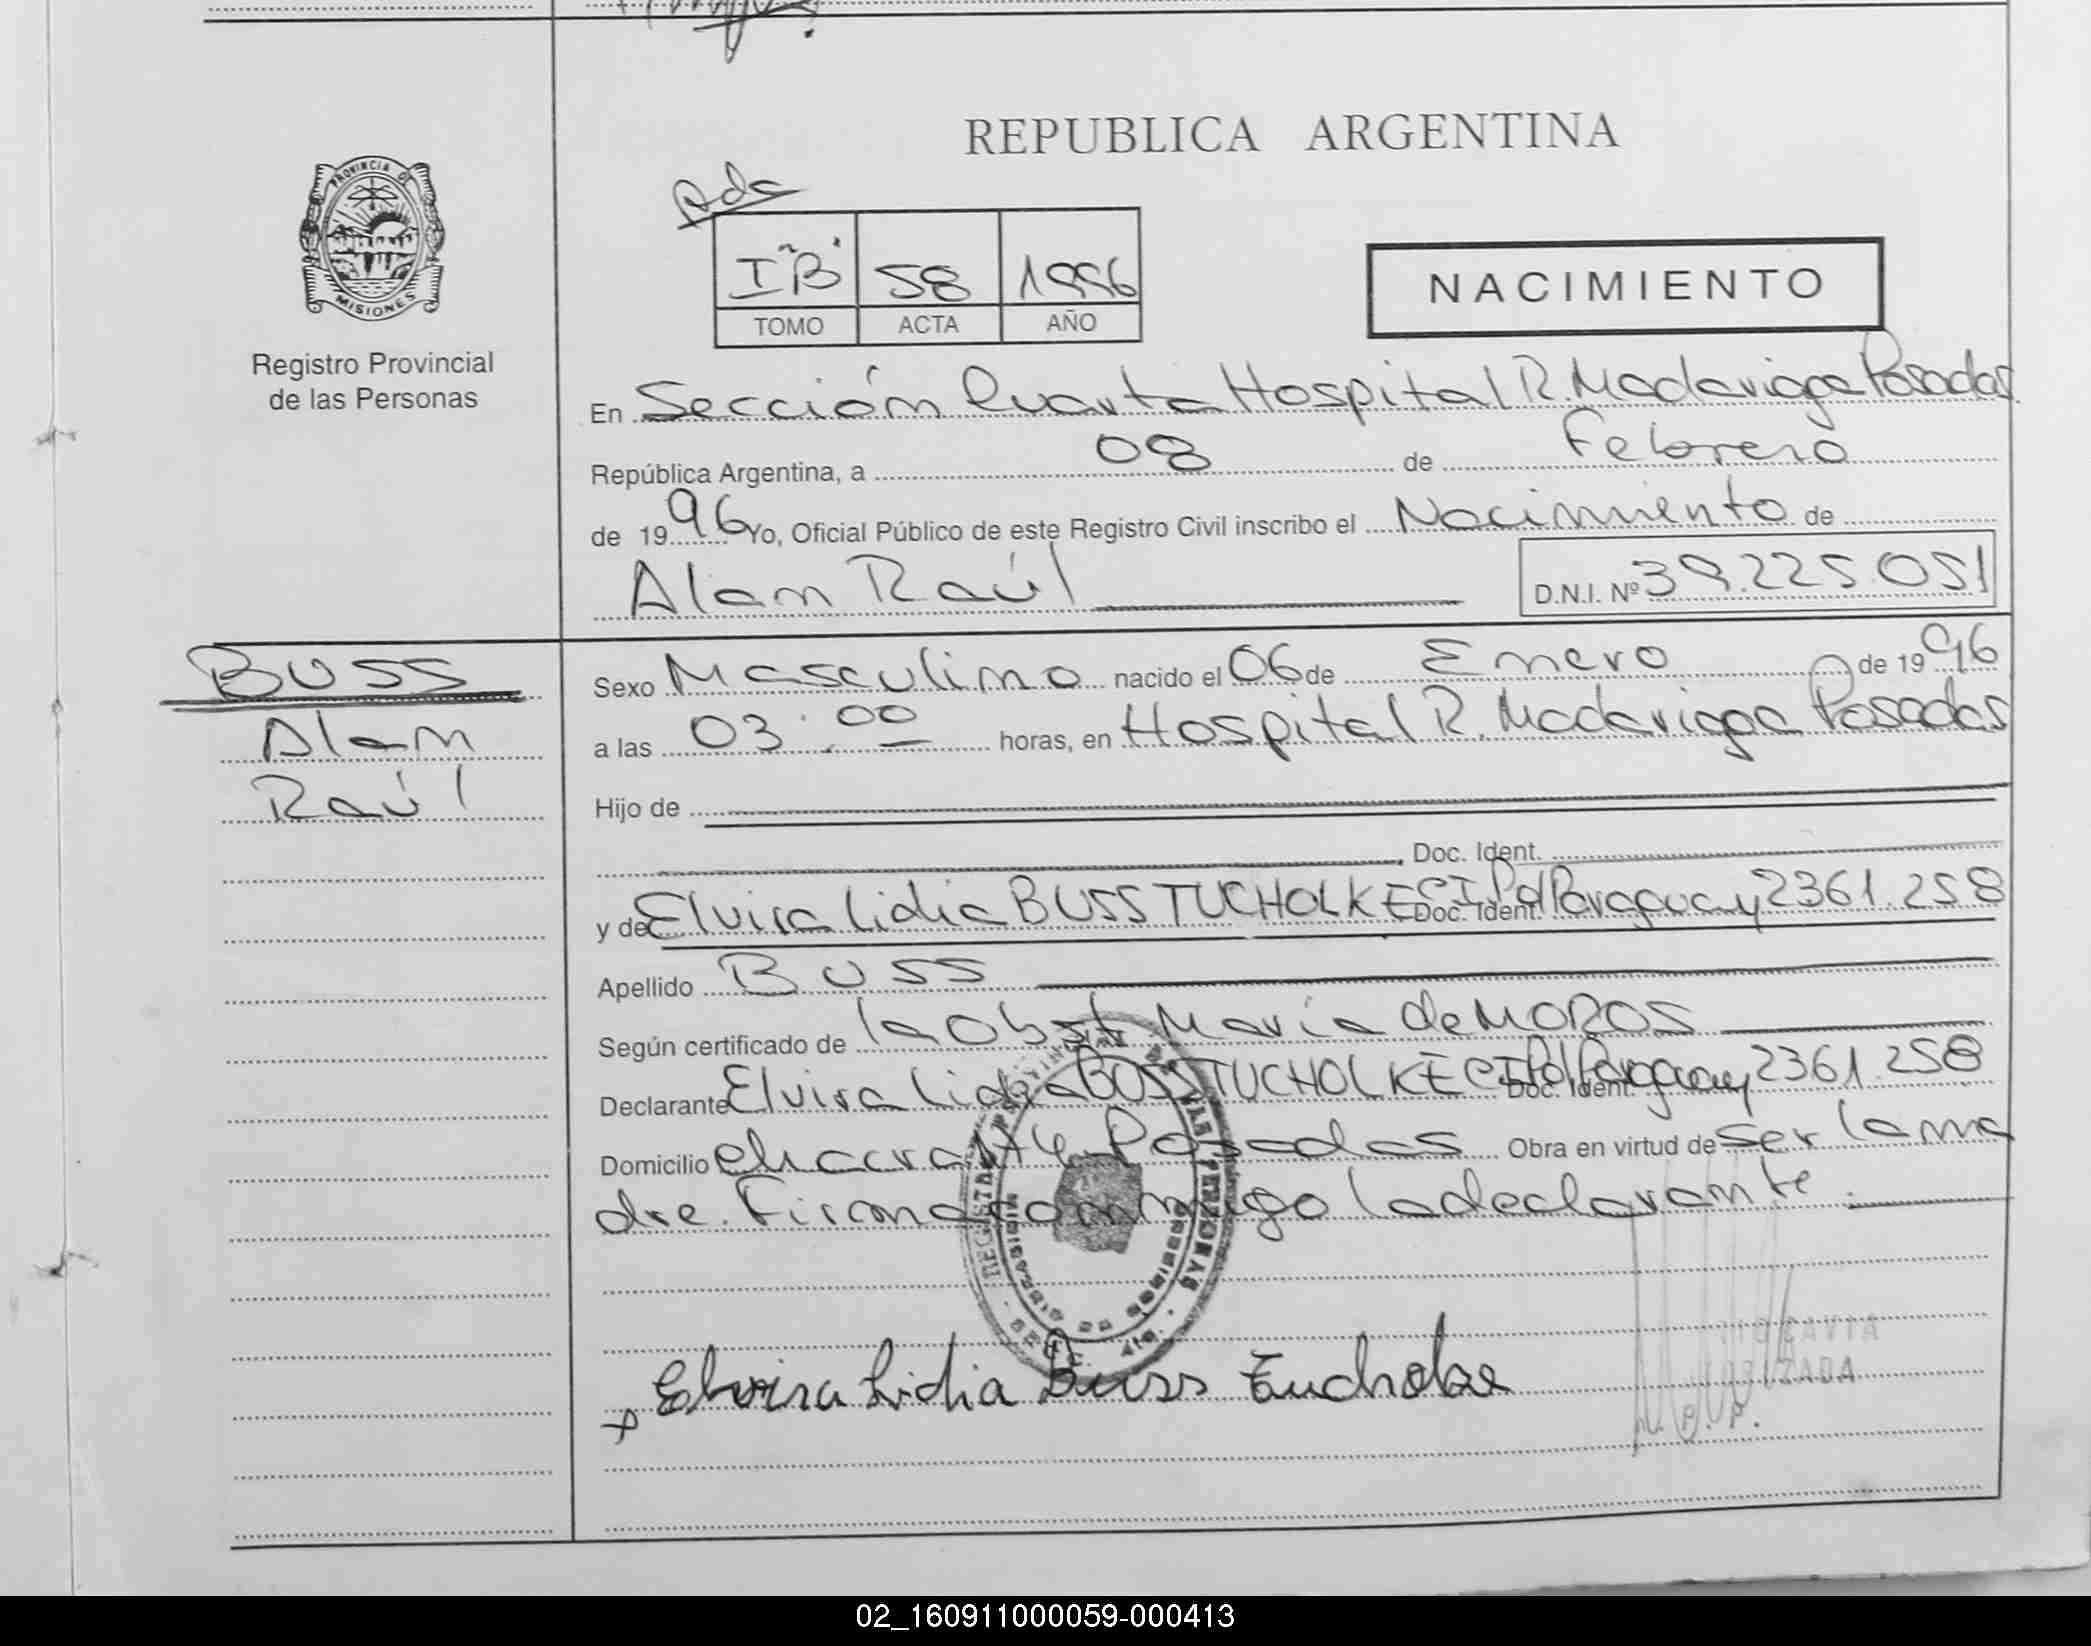 REPUBLICA ARGENTINA
PROVINCIA D
MISIONES
Registro Provincial
de las Personas
Adc
I "B" 58 1996
TOMO ACTA AÑO
NACIMIENTO
En Sección Cuarta Hospital R. Madariaga Posadas
República Argentina, a 08 de Febrero
de 1996 Yo, Oficial Público de este Registro Civil inscribo el Nacimiento de
Alam Raúl D.N.I. Nº 39.225.051
BUSS
Alam
Raúl
Sexo Masculino nacido el 06 de Enero de 1996
a las 03:00 horas, en Hospital R. Madariaga Posadas
Hijo de
Doc. Ident.
y de Elvira Lidia BUSS TUCHOLKE Doc. Ident. C I Pol Paraguay 2361.258
Apellido BUSS
Según certificado de la Obst María de MOROS
Declarante Elvira Lidia BUSS TUCHOLKE Doc. Ident. C I Pol Paraguay 2361.258
Domicilio chacra Posadas Obra en virtud de ser la ma
dre. Firma conmigo la declarante.
x Elvira Lidia Buss Tucholke
R. P. P.
02_160911000059-000413